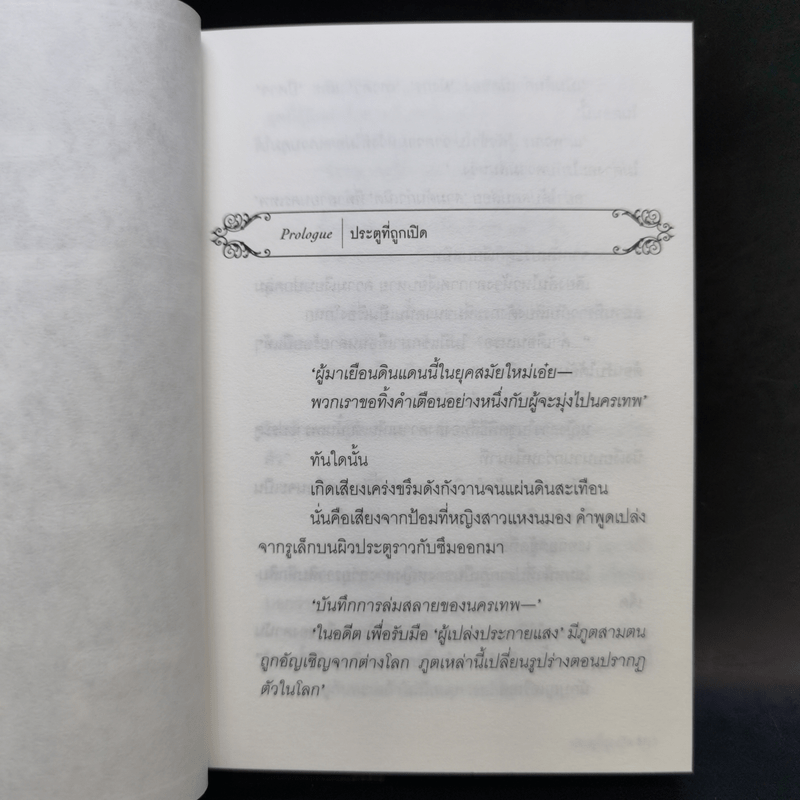 Prologue | ประตูที่ถูกเปิด
‘ผู้มาเยือนดินแดนนี้ในยุคสมัยใหม่เอ๋ย—
พวกเราขอทิ้งคำเตือนอย่างหนึ่งกับผู้จะมุ่งไปนครเทพ’
ทันใดนั้น
เกิดเสียงเคร่งขรึมดังกังวานจนแผ่นดินสะเทือน
นั่นคือเสียงจากป้อมที่หญิงสาวแหงนมอง คำพูดเปล่ง
จากรูเล็กบนผิวประตูราวกับซึมออกมา
‘บันทึกการล่มสลายของนครเทพ—’
‘ในอดีต เพื่อรับมือ ‘ผู้เปล่งประกายแสง’ มีภูตสามตน
ถูกอัญเชิญจากต่างโลก ภูตเหล่านี้เปลี่ยนรูปร่างตอนปรากฏ
ตัวในโลก’